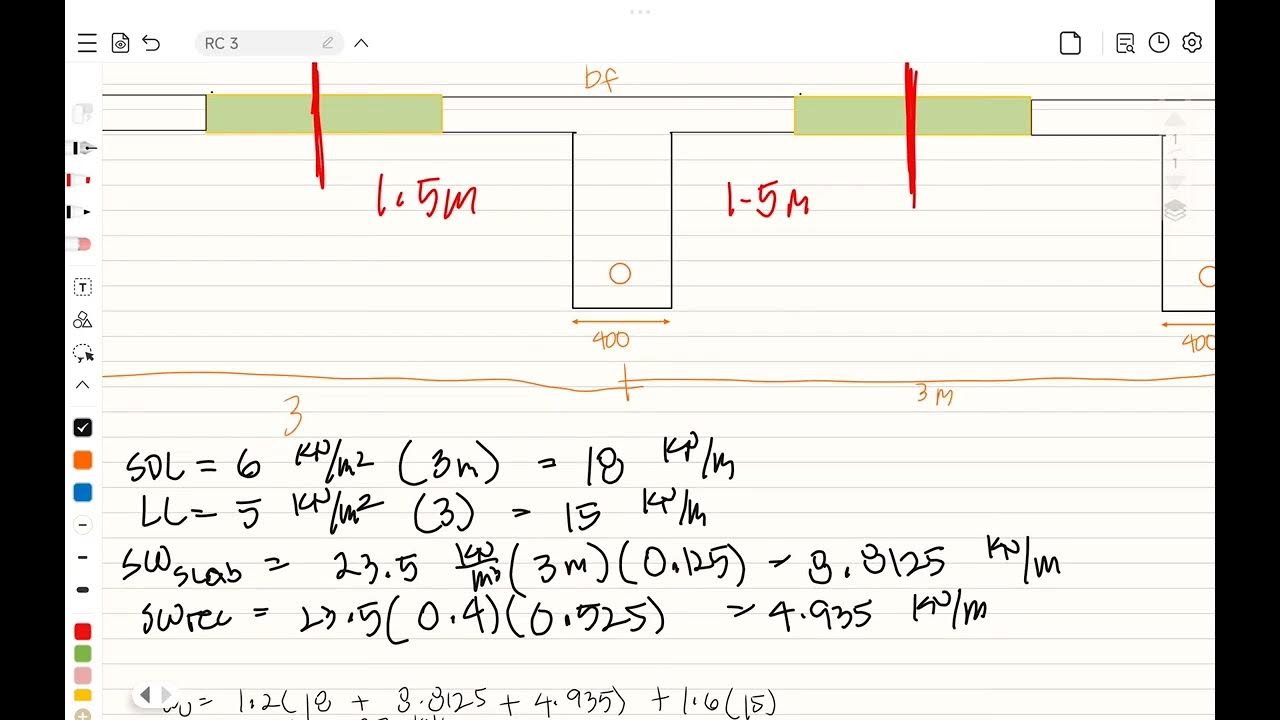 RC 3
bf
1.5m
1-5m
1
1
400
400
3m
3
SDL = 6 KN/m² (3m) = 18 KN/m
LL = 5 KN/m² (3) = 15 KN/m
SW slab = 23.5 KN/m³ (3m)(0.125) = 8.8125 KN/m
SW rec = 23.5(0.4)(0.525) = 4.935 KN/m
= 1.2(18 + 8.8125 + 4.935) + 1.6(15)
T